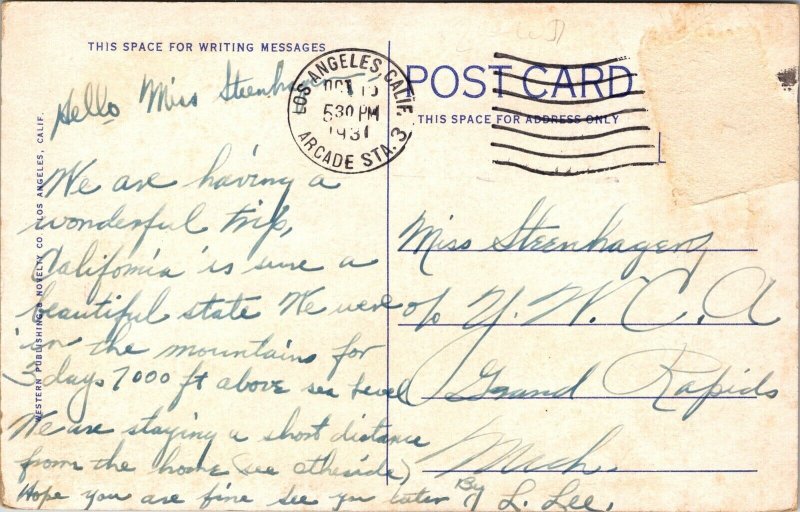 THIS SPACE FOR WRITING MESSAGES
Hello Miss Steenhagen
We are having a
wonderful trip,
California is sure a
beautiful state We were
in the mountains for
3 days 7000 ft above sea level
We are staying a short distance
from the home (see otheside)
Hope you are fine see you later By L. Lee,
WESTERN PUBLISHING & NOVELTY CO., LOS ANGELES, CALIF.
LOS ANGELES, CALIF.
OCT
5 30 PM
1931
ARCADE STA. 3
POST CARD
THIS SPACE FOR ADDRESS ONLY
Miss Steenhagen
c/o Y. W. C. A
Grand Rapids
Mich.